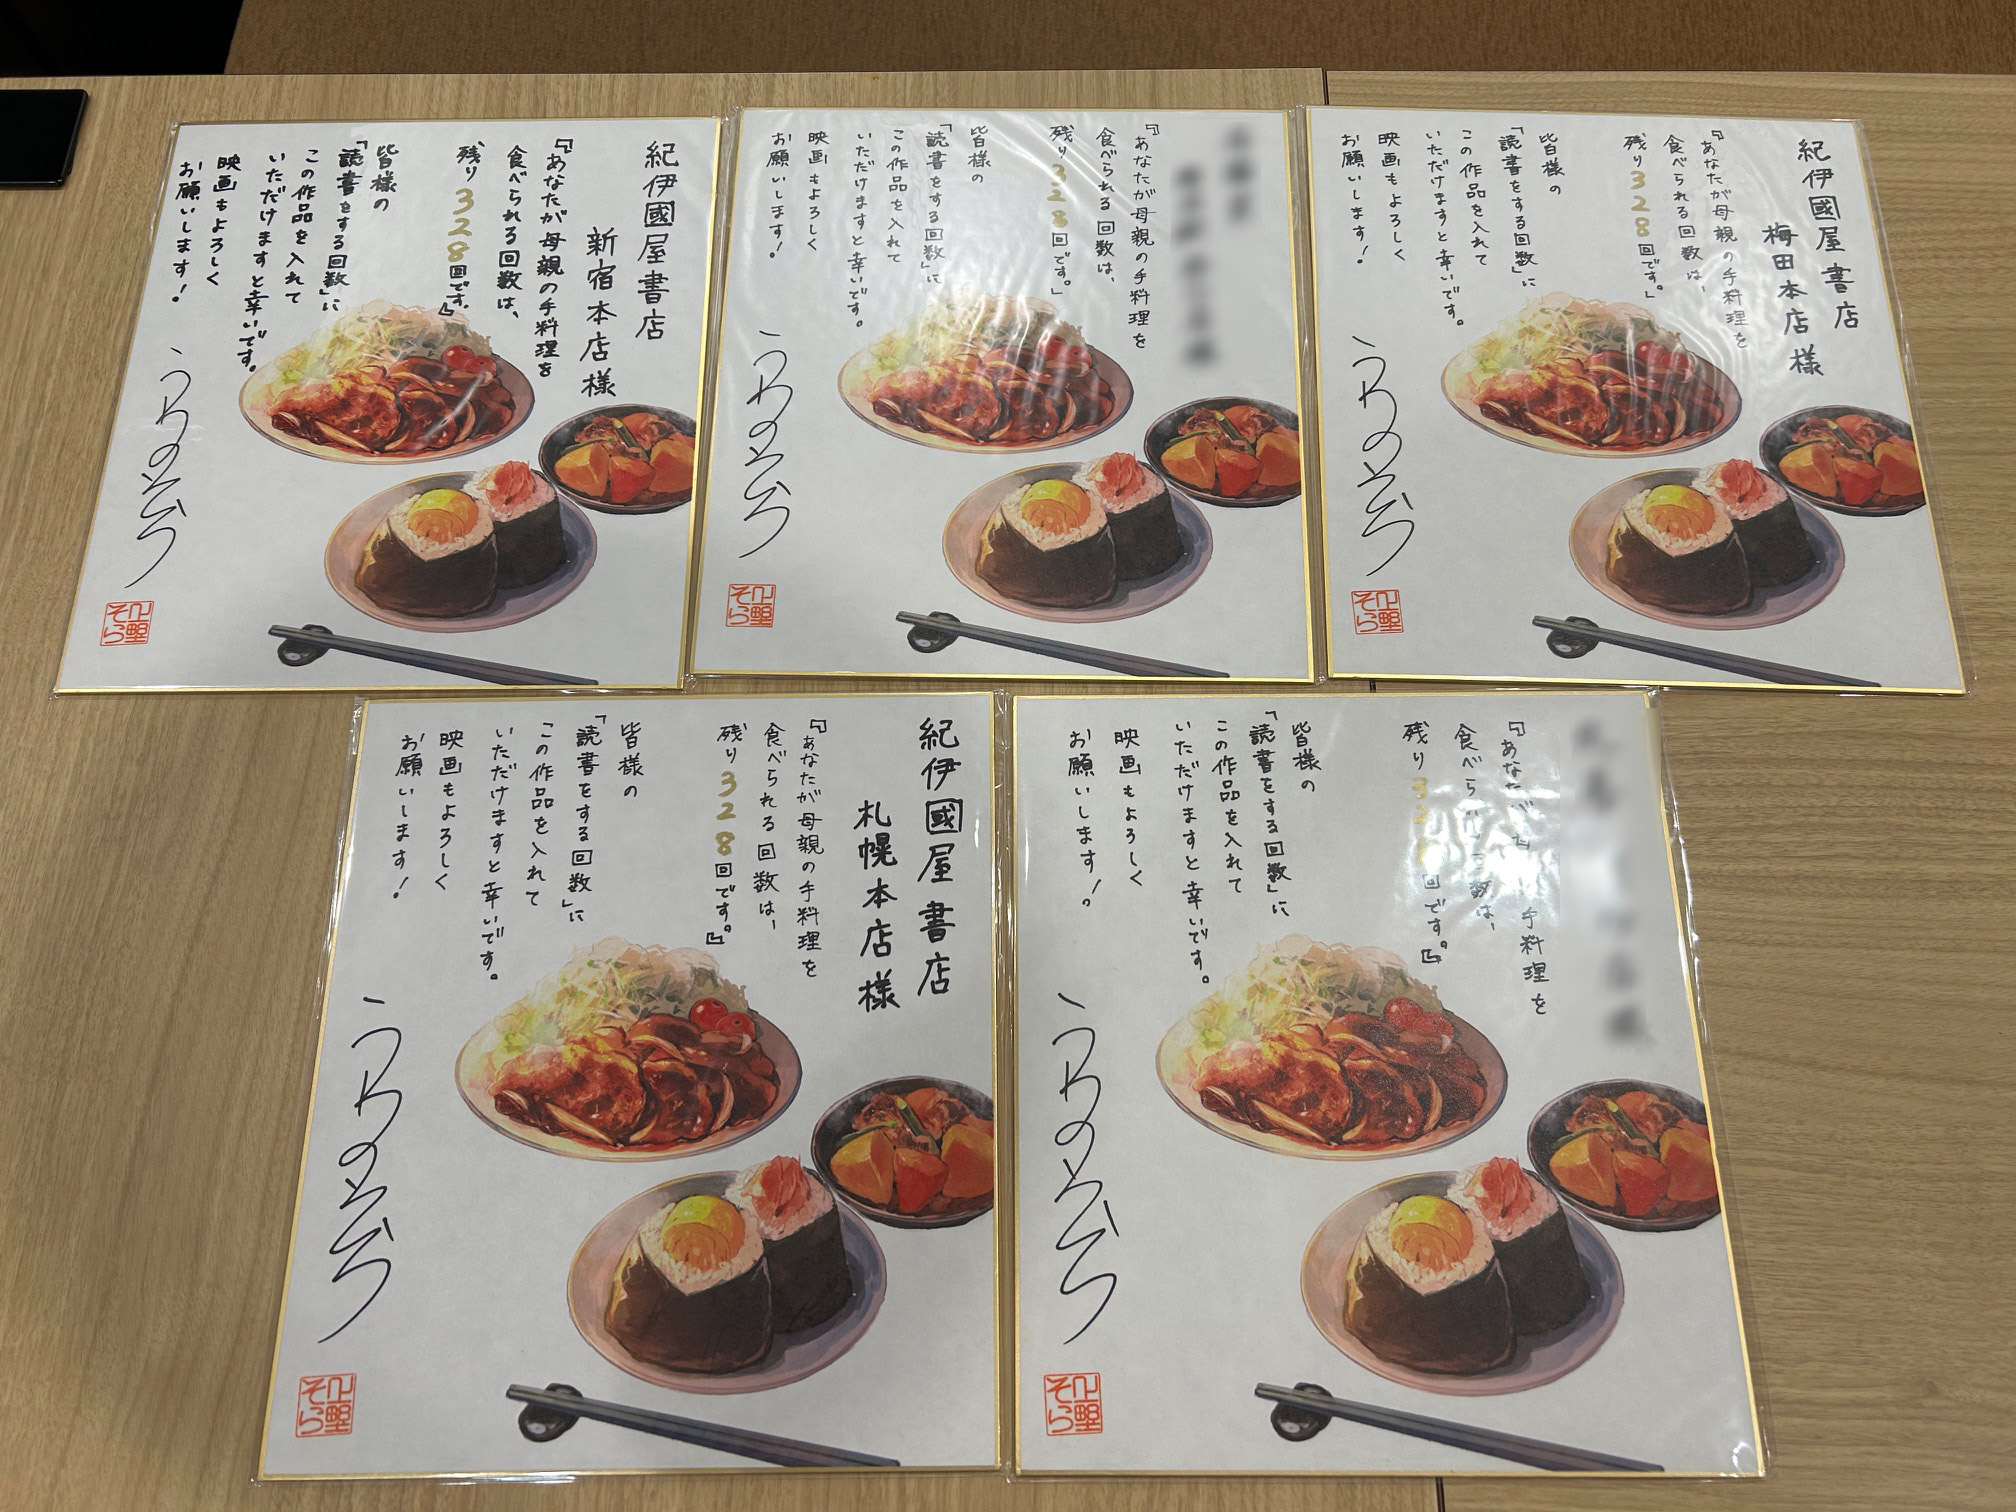 紀伊國屋書店
新宿本店様
『あなたが母親の手料理を
食べられる回数は、
残り328回です。』
皆様の
「読書をする回数」に
この作品を入れて
いただけますと幸いです。
映画もよろしく
お願いします!
うわのそら
上野そら
『あなたが母親の手料理を
食べられる回数は、
残り328回です。』
皆様の
「読書をする回数」に
この作品を入れて
いただけますと幸いです。
映画もよろしく
お願いします!
うわのそら
上野そら
紀伊國屋書店
梅田本店様
『あなたが母親の手料理を
食べられる回数は、
残り328回です。』
皆様の
「読書をする回数」に
この作品を入れて
いただけますと幸いです。
映画もよろしく
お願いします!
うわのそら
上野そら
紀伊國屋書店
札幌本店様
『あなたが母親の手料理を
食べられる回数は、
残り328回です。』
皆様の
「読書をする回数」に
この作品を入れて
いただけますと幸いです。
映画もよろしく
お願いします!
うわのそら
上野そら
『あなたが 手料理を
食べら 数は、
残り32 回です。』
皆様の
「読書をする回数」に
この作品を入れて
いただけますと幸いです。
映画もよろしく
お願いします!。
うわのそら
上野そら